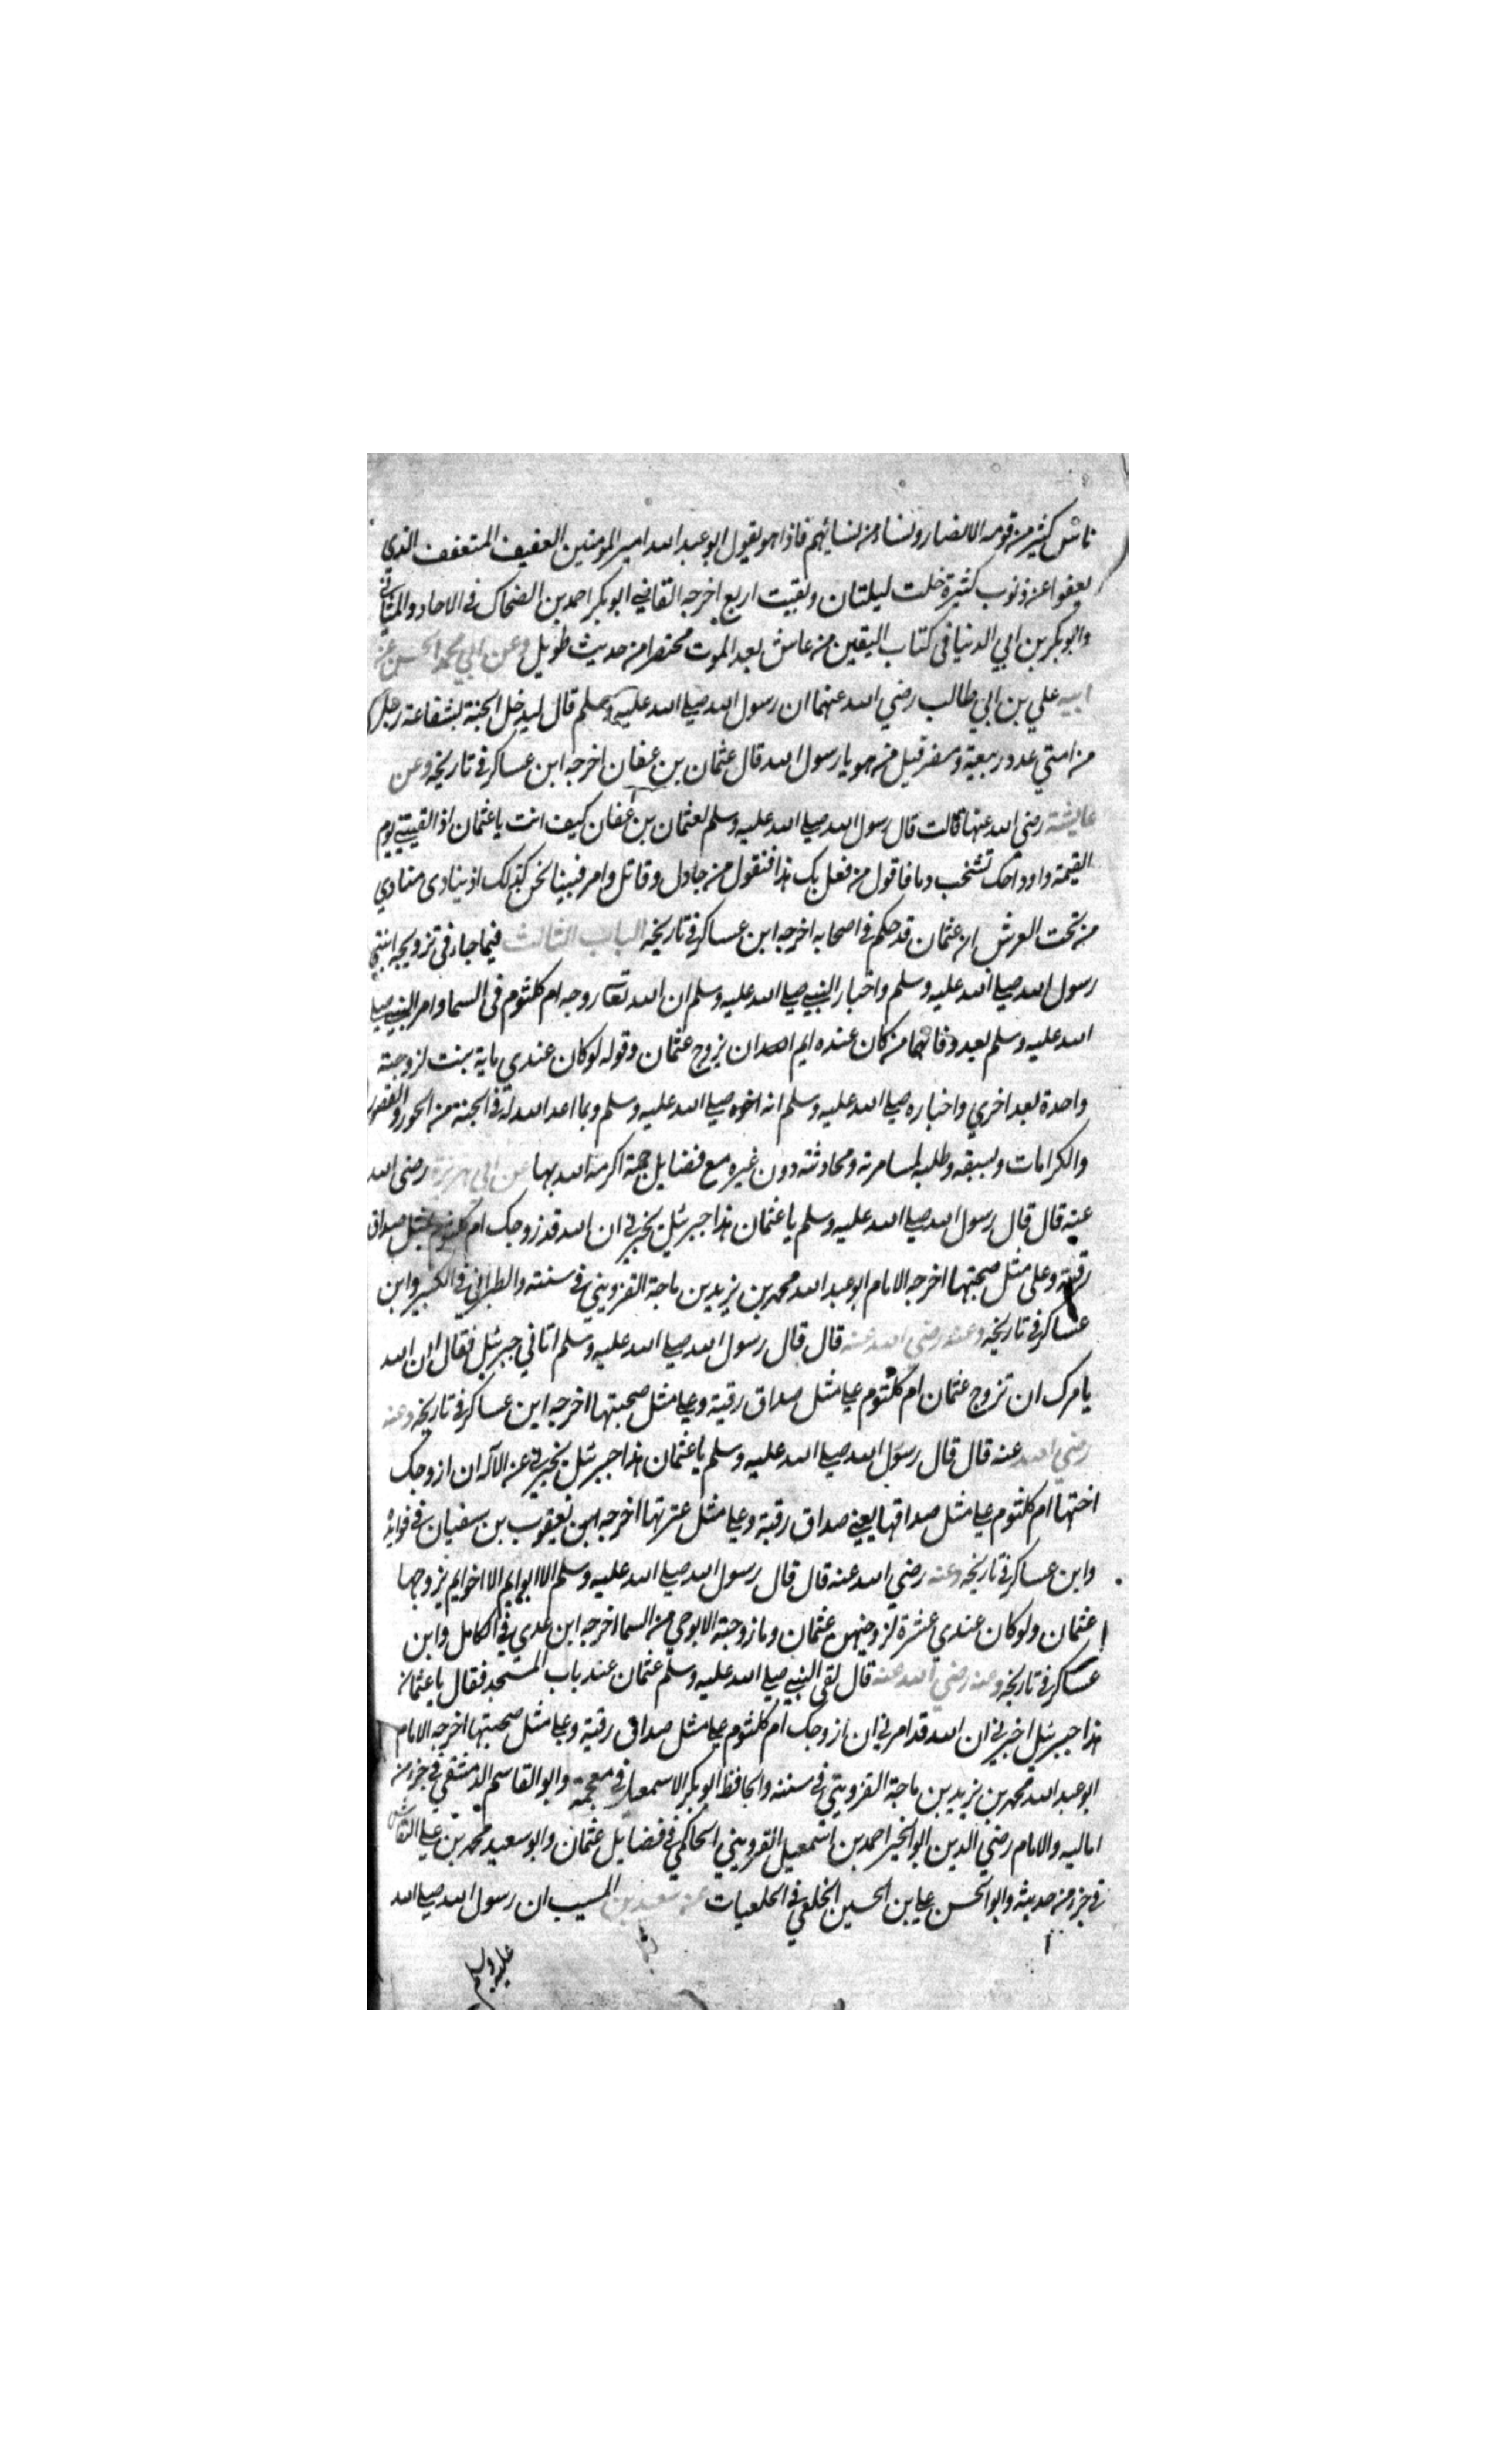 ناس كثير من قومه الانصار ونساء من نسائهم فاذا هو يقول ابو عبد الله امير المومنين العفيف المتعفف الذي
يعفوا عن ذنوب كثيرة خلت ليلتان وبقيت اربع اخرجه القاضي ابو بكر احمد بن الضحاك في الاحاد والمثاني
وابو بكر بن ابي الدنيا في كتاب اليقين من عاش بعد الموت مختصرا من حديث طويل وعن ابي محمد الحسن عن
ابيه علي بن ابي طالب رضي الله عنهما ان رسول الله صلى الله عليه وسلم قال ليدخل الجنة بشفاعة رجل
من امتي عدد ربيعة ومضر قيل من هو يا رسول الله قال عثمان بن عفان اخرجه ابن عساكر في تاريخه وعن
عايشة رضي الله عنها قالت قال رسول الله صلى الله عليه وسلم لعثمان بن عفان كيف انت يا عثمان اذا لقيتني يوم
القيمة واوداجك تشخب دما فاقول من فعل بك هذا فتقول من جادل وقاتل وامر فبينا نحن كذلك اذ ينادى منادي
من تحت العرش ان عثمان قد حكم في اصحابه اخرجه ابن عساكر في تاريخه الباب الثالث فيما جاء في تزويجه ابنتي
رسول الله صلى الله عليه وسلم واخبار النبي صلى الله عليه وسلم ان الله تعالى زوجه ام كلثوم في السما وامر النبي صلى
الله عليه وسلم بعد وفاتهما من كان عنده ايم ان يزوج عثمان وقوله لو كان عندي ماية بنت لزوجته
واحدة بعد اخري واخباره صلى الله عليه وسلم انه اخوه صلى الله عليه وسلم وبما اعد الله له في الجنة من الحور والقصور
والكرامات وبسبقه وطلبه لمسامرته ومحادثته دون غيره مع فضايل جمة اكرمه الله بها عن ابي هريرة رضي الله
عنه قال قال رسول الله صلى الله عليه وسلم يا عثمان هذا جبرئيل يخبرني ان الله قد زوجك ام كلثوم بمثل صداق
رقية وعلى مثل صحبتها اخرجه الامام ابو عبد الله محمد بن يزيد بن ماجة القزويني في سننه والطبراني في الكبير وابن
عساكر في تاريخه وعنه رضي الله عنه قال قال رسول الله صلى الله عليه وسلم اتاني جبرئيل فقال ان الله
يامرك ان تزوج عثمان ام كلثوم على مثل صداق رقية وعلى مثل صحبتها اخرجه ابن عساكر في تاريخه وعنه
رضي الله عنه قال قال رسول الله صلى الله عليه وسلم يا عثمان هذا جبرئيل يخبرني عن الاله ان ازوجك
اختها ام كلثوم على مثل صداقها يعني صداق رقية وعلى مثل عشرتها اخرجه يعقوب بن سفيان في فوايده
وابن عساكر في تاريخه وعنه رضي الله عنه قال قال رسول الله صلى الله عليه وسلم الا ابو ايم الا اخو ايم يزوجها
عثمان ولو كان عندي عشرة لزوجتهن عثمان وما زوجته الا بوحي من السما اخرجه ابن عدي في الكامل وابن
عساكر في تاريخه وعنه رضي الله عنه قال لقي النبي صلى الله عليه وسلم عثمان عند باب المسجد فقال يا عثمان
هذا جبرئيل اخبرني ان الله قد امرني ان ازوجك ام كلثوم على مثل صداق رقية وعلى مثل صحبتها اخرجه الامام
ابو عبد الله محمد بن يزيد بن ماجة القزويني في سننه والحافظ ابو بكر الاسمعيلي في معجمه وابو القاسم الدمشقي في جزء من
اماليه والامام رضي الدين ابو الخير احمد بن اسمعيل القزويني الحاكمي في فضايل عثمان وابو سعيد محمد بن علي النقاش
في جزء من حديثه وابو الحسن علي بن الحسين الخلعي في الخلعيات عن سعيد بن المسيب ان رسول الله صلى الله
عليه وسلم